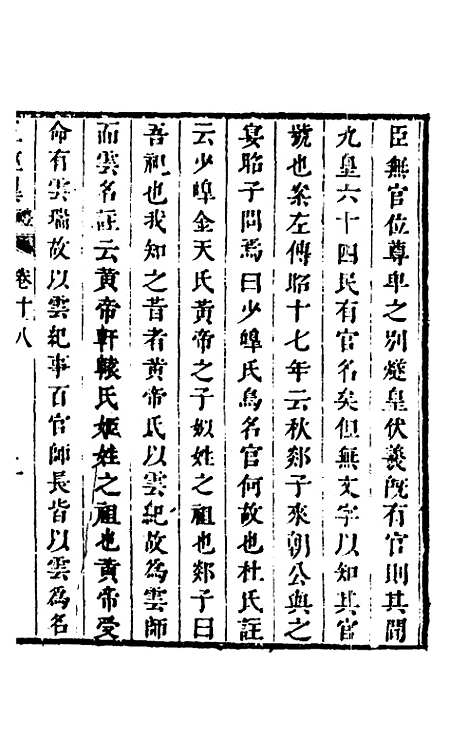 臣無官位尊卑之別燧皇伏羲旣有官則其間
九皇六十四民有官名矣但無文字以知其官
號也案左傳昭十七年云秋郯子來朝公與之
宴昭子問焉曰少皞氏鳥名官何故也杜氏註
云少皞金天氏黃帝之子姒姓之祖也郯子曰
吾祀也我知之昔者黃帝氏以雲紀故為雲師
而雲名註云黃帝軒轅氏姬姓之祖也黃帝受
命有雲瑞故以雲紀事百官師長皆以雲為名
卷十八